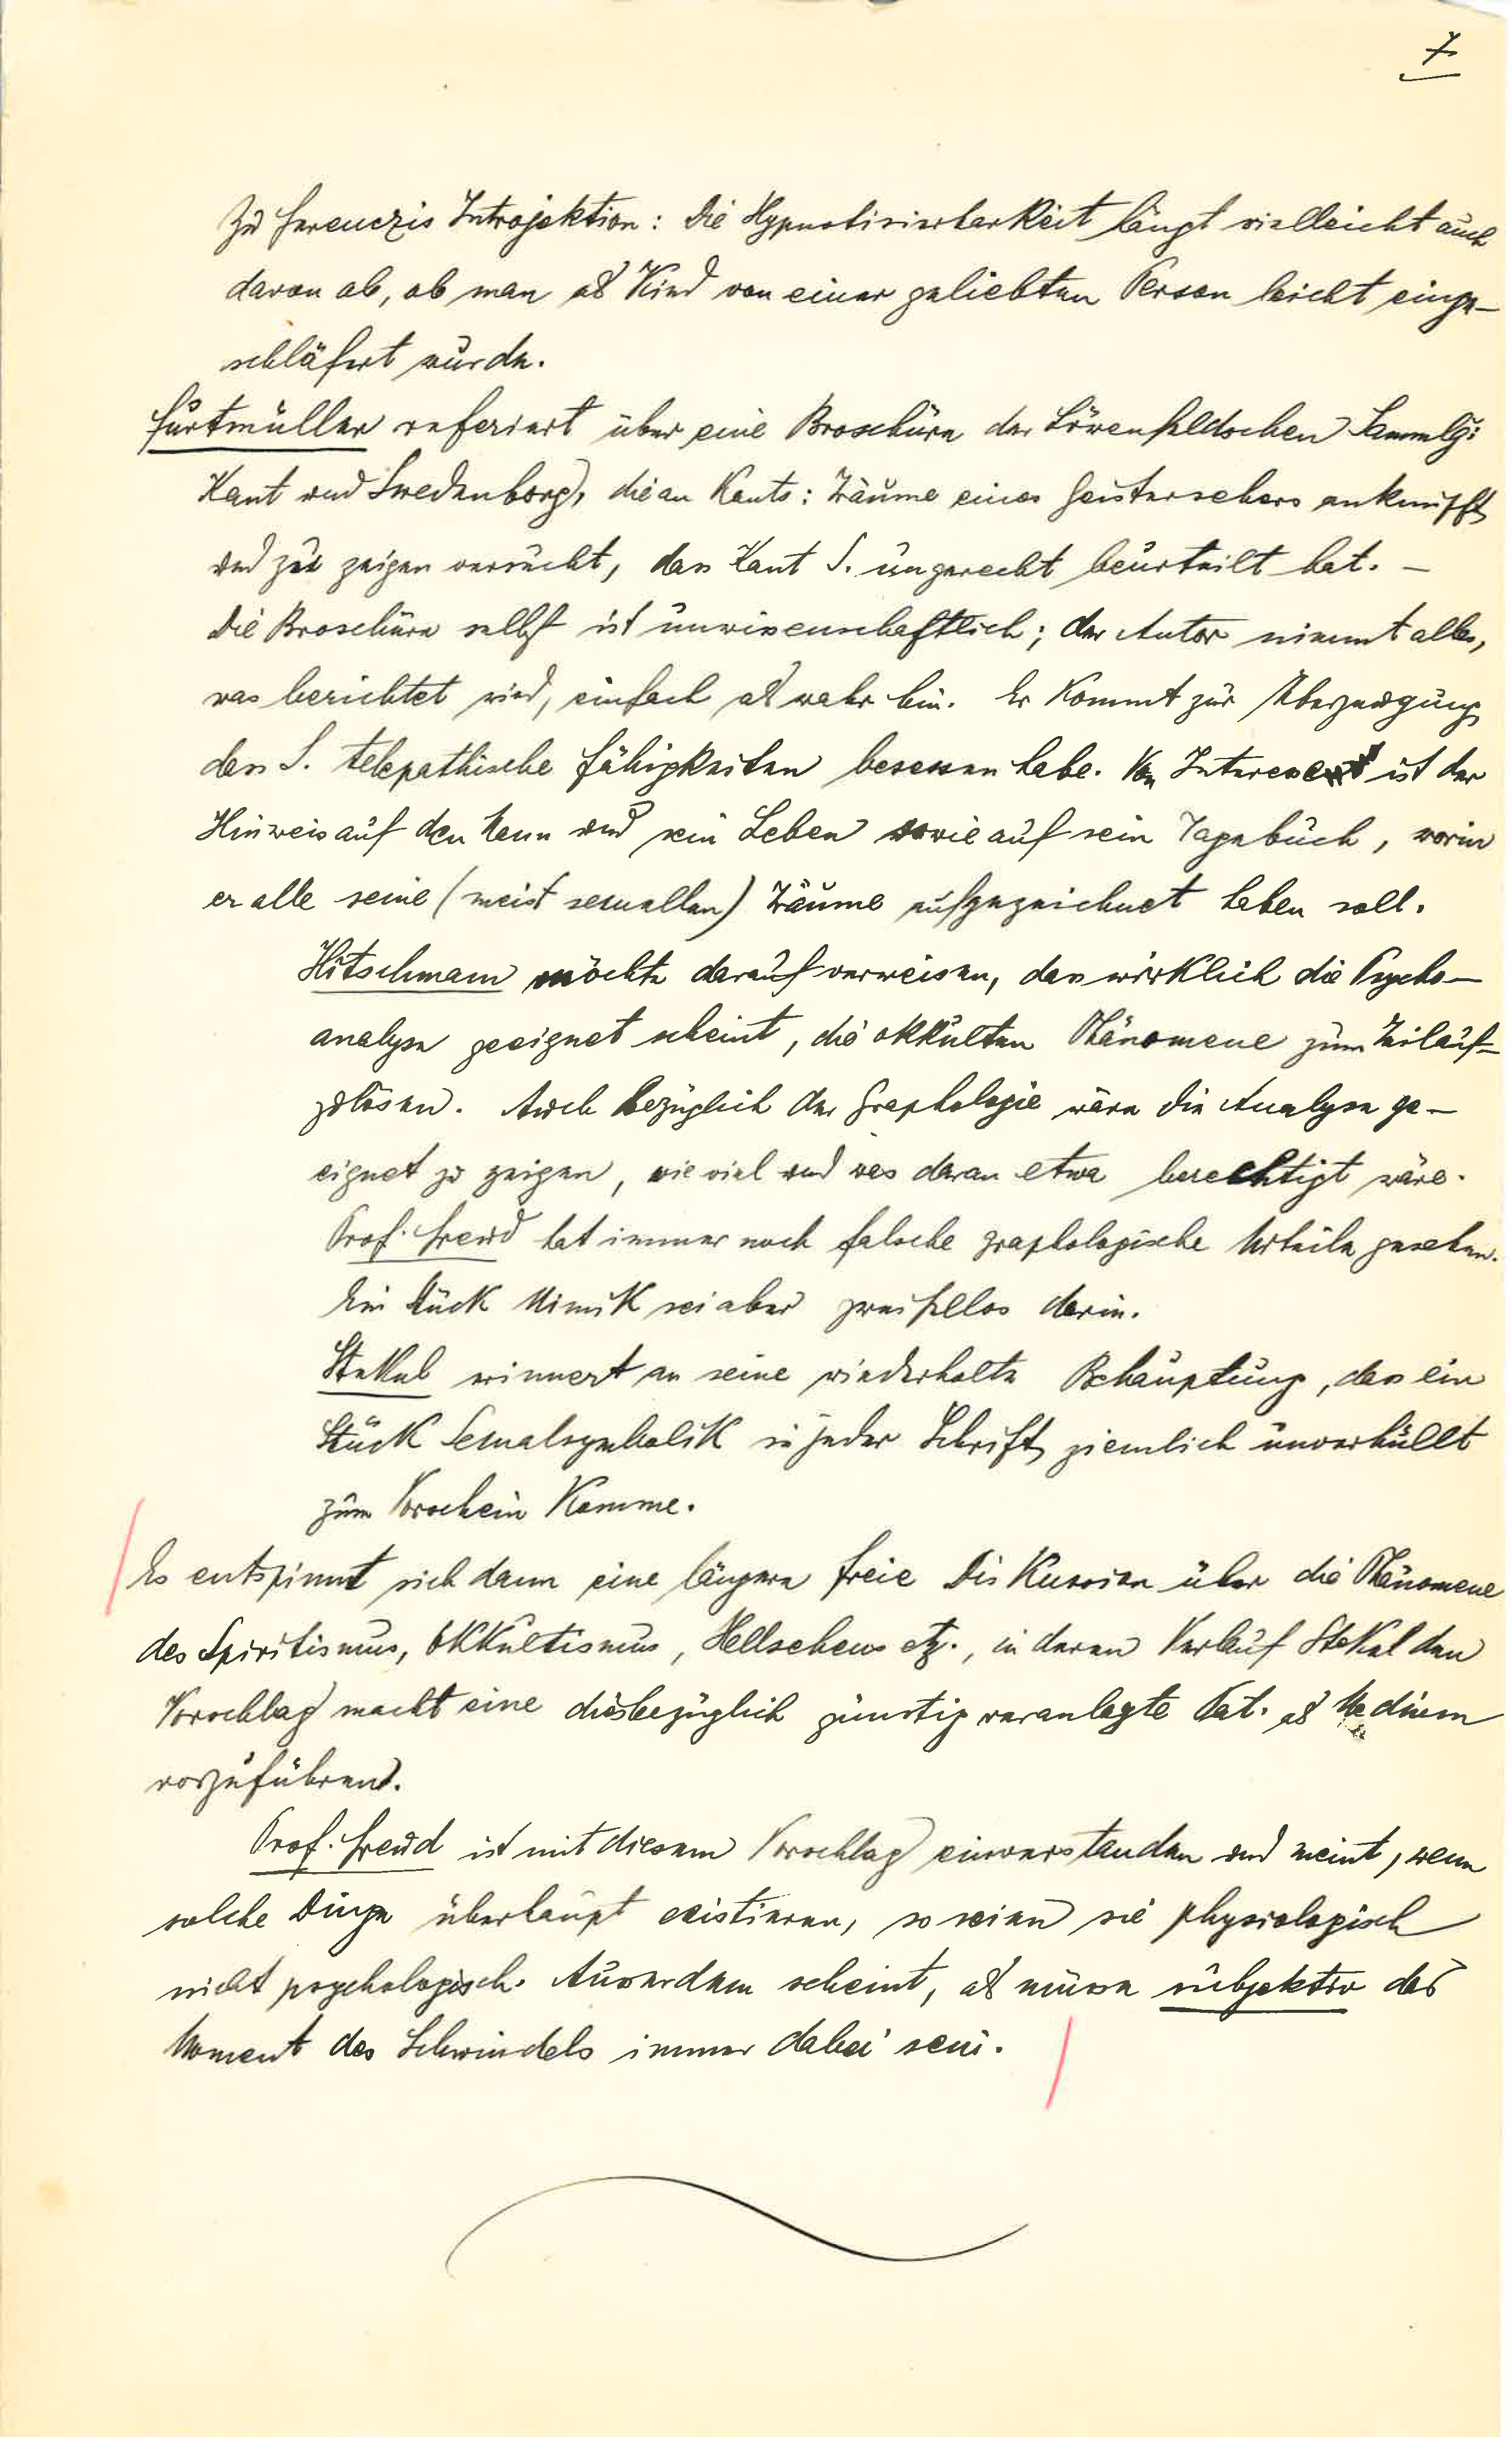 7
Zu Ferenczis Introjektion: Die Hypnotisierbarkeit hängt vielleicht auch
davon ab, ob man als Kind von einer geliebten Person leicht einge-
schläfert wurde.
Furtmüller referiert über eine Broschüre der Löwenfeldschen Sammlg:
Kant und Swedenborg, die an Kants: Träume eines Geistersehers anknüpft
und zu zeigen versucht, dass Kant S. ungerecht beurteilt hat. –
Die Broschüre selbst ist unwissenschaftlich; der Autor nimmt alles,
was berichtet wird, einfach als wahr hin. Er kommt zur Überzeugung
dass S. telepathische Fähigkeiten besessen habe. Von Interesse ist der
Hinweis auf den Mann und sein Leben sowie auf sein Tagebuch, worin
er alle seine (meist sexuellen) Träume aufgezeichnet haben soll.
Hitschmann möchte darauf verweisen, dass wirklich die Psycho-
analyse geeignet scheint, die okkulten Phänomene zum Teil auf-
zulösen. Auch bezüglich der Graphologie wäre die Analyse ge-
eignet zu zeigen, wie viel und was daran etwa berechtigt wäre.
Prof. Freud hat immer noch falsche graphologische Urteile gesehen.
Ein Stück Mimik sei aber zweifellos darin.
Stekel erinnert an seine wiederholte Behauptung, dass ein
Stück Sexualsymbolik in jeder Schrift ziemlich unverhüllt
zum Vorschein komme.
Es entspinnt sich dann eine längere freie Diskussion über die Phänomene
des Spiritismus, Okkultismus, Hellsehens etz., in deren Verlauf Stekel den
Vorschlag macht eine diesbezüglich günstig veranlagte Pat. als Medium
vorzuführen.
Prof. Freud ist mit diesem Vorschlag einverstanden und meint, wenn
solche Dinge überhaupt existieren, so seien sie physiologisch
nicht psychologisch. Ausserdem scheint, als müsse subjektiv das
Moment des Schwindels immer dabei sein.